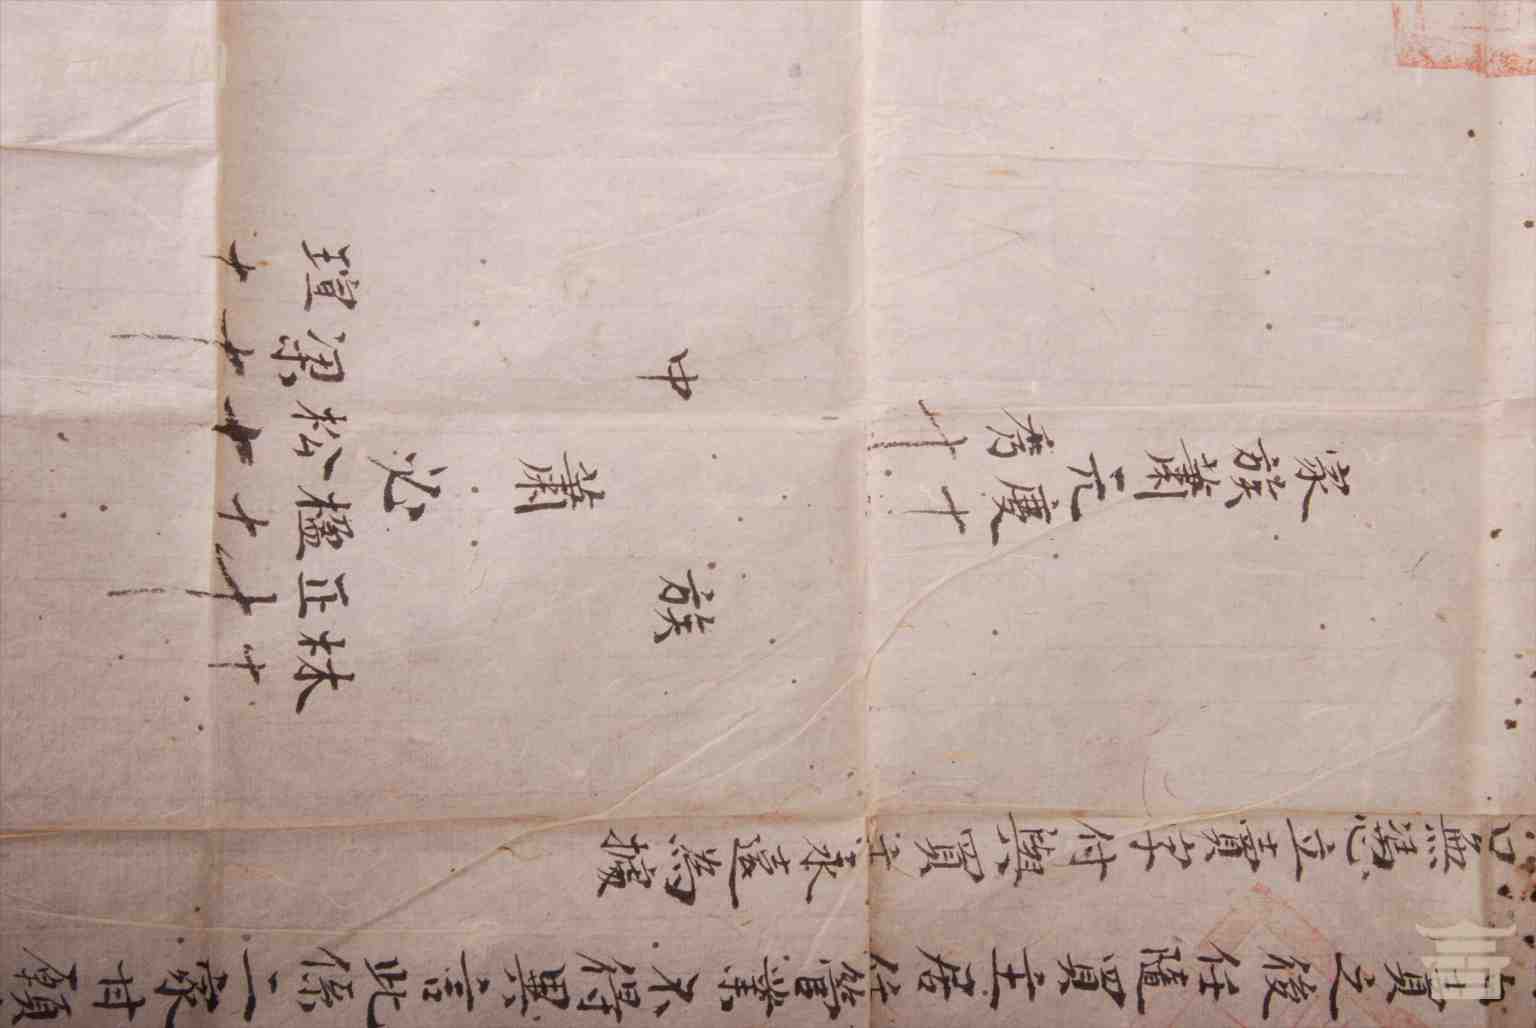 賣之後任隨買主居住管業不得異言此係二家甘願
口無憑立賣字付與買主永遠為據
家族蕭元慶十
秀十
族
中
蕭
必
林十
正十
楹十
松十
十
瑄十